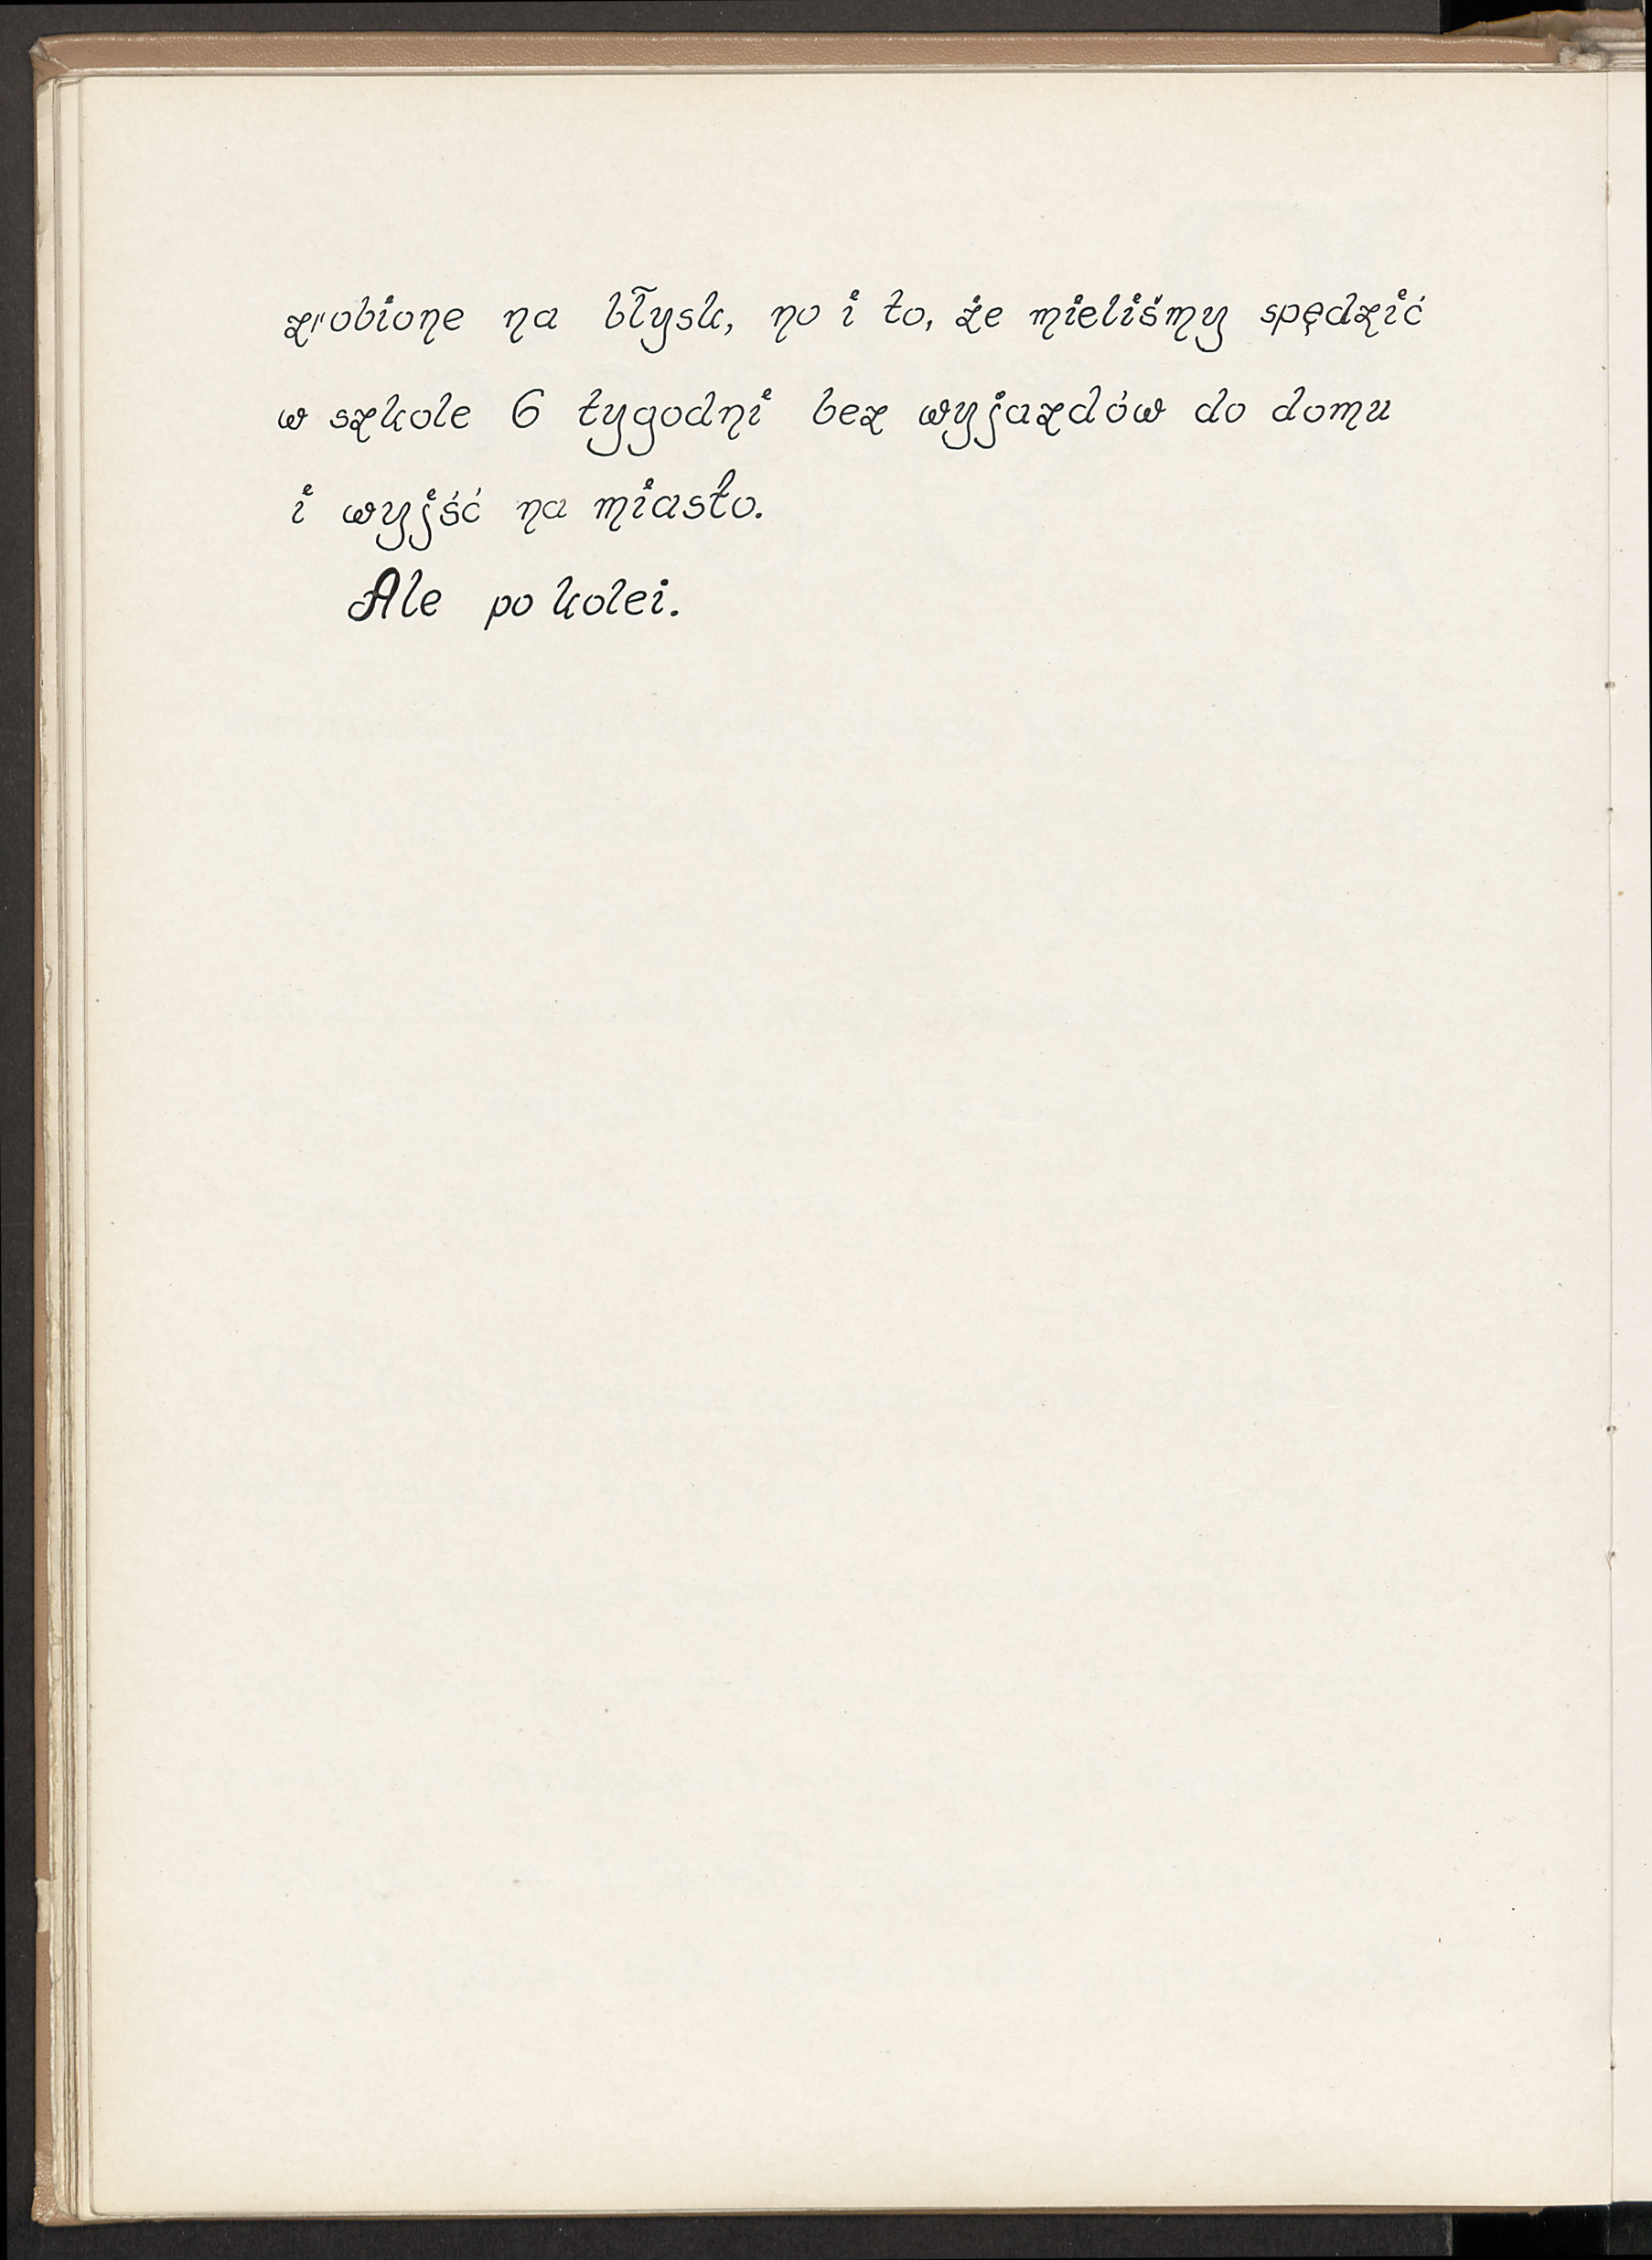 zrobione na błysk, no i to, że mieliśmy spędzić
w szkole 6 tygodni bez wyjazdów do domu
i wyjść na miasto.
Ale po kolei.